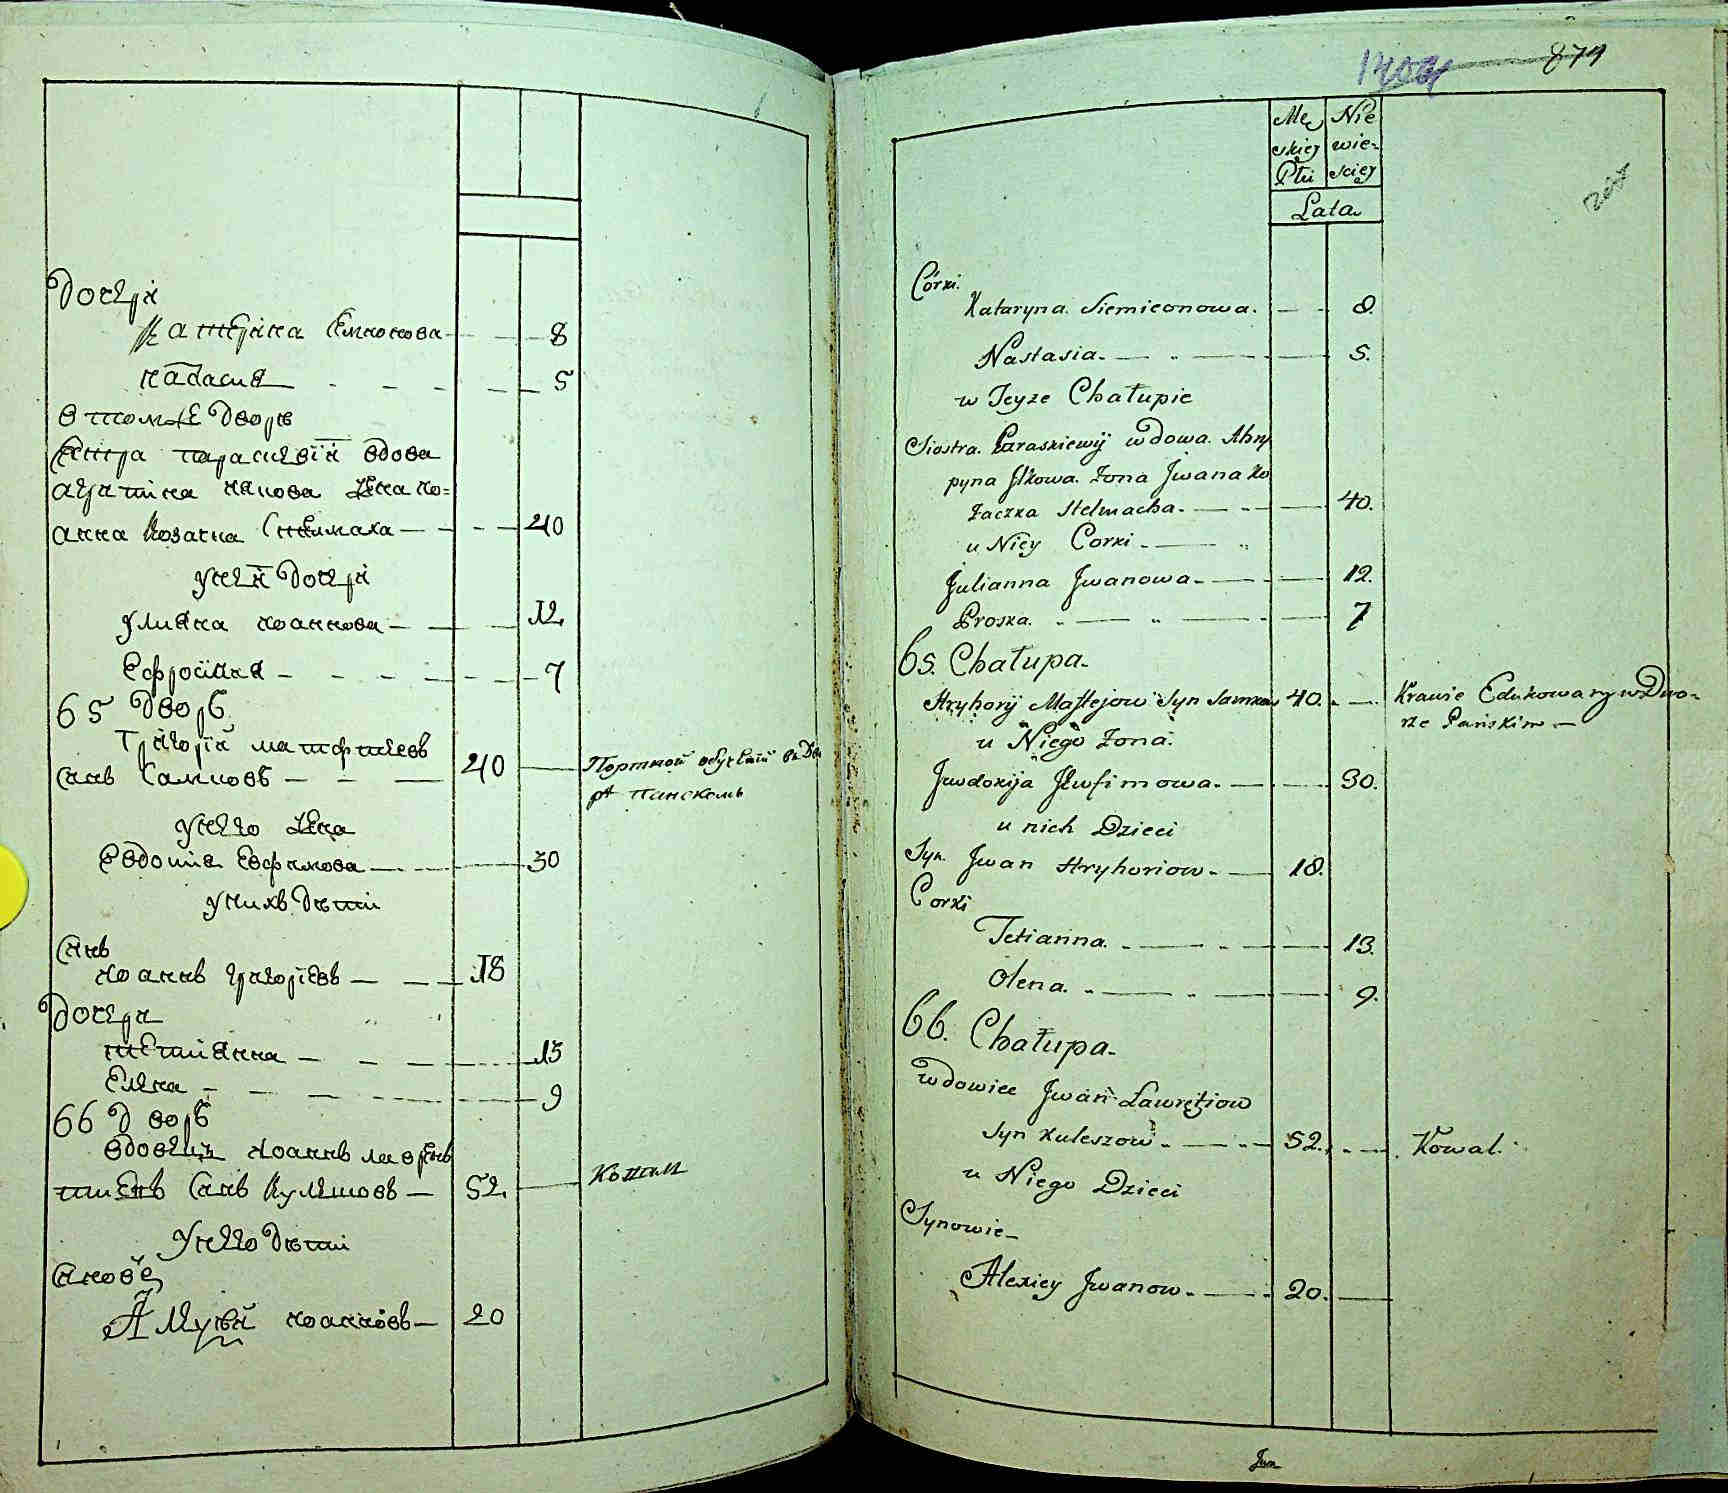 дочери
Катерина Симионова — 8
Настасия — 5
в томже дворѣ
Сестра параскевіи вдова
агрипина илкова жена ио=
анна Козачка Стелмаха — 40
унеи дочери
улияна иоаннова — 12
Ефросиния — 7
65 дворъ
Григорій матфиевъ
синъ Самковъ — 40 — Портной обученій въ Дво
рѣ панскомъ
унего жена
Евдокия Евфимова — 30
унихъ дѣти
Синъ
иоаннъ григориевъ — 18
дочери
тетиянна — 13
Елена — 9
66 дворъ
вдовецъ иоаннъ лаврен
тиевъ Синъ Кулешовъ — 52 — Коваль
унего дѣти
Синовѣ
иоанновъ — 20
879
Mę Nie
skiey wie=
Płci sciey
Lata
Córki.
Kataryna Siemieonowa. — 8.
Nastasia. — 5.
w Teyze Chałupie
Siostra Paraskiewij wdowa Ahry
pyna Ilkowa Zona Jwana Ko
zaczka Stelmacha. — 40.
u Niey Corki. —
Julianna Jwanowa. — 12.
Proska. — 7
65. Chałupa.
Hryhory Mattejow Syn Samkow 40. — Krawie Edukowany w Dwo=
rze Pańskim —
u Niego Zona.
Jwdokija Jewfimowa. — 30.
u nich Dzieci
Syn. Jwan Hryhoriow. — 18.
Corki
Tetianna. — 13.
Olena. — 9.
66. Chałupa.
wdowiec Jwan Lawrętiow
Syn Kuleszow. — 52. — Kowal.
u Niego Dzieci
Synowie —
Alexiey Jwanow. — 20. —